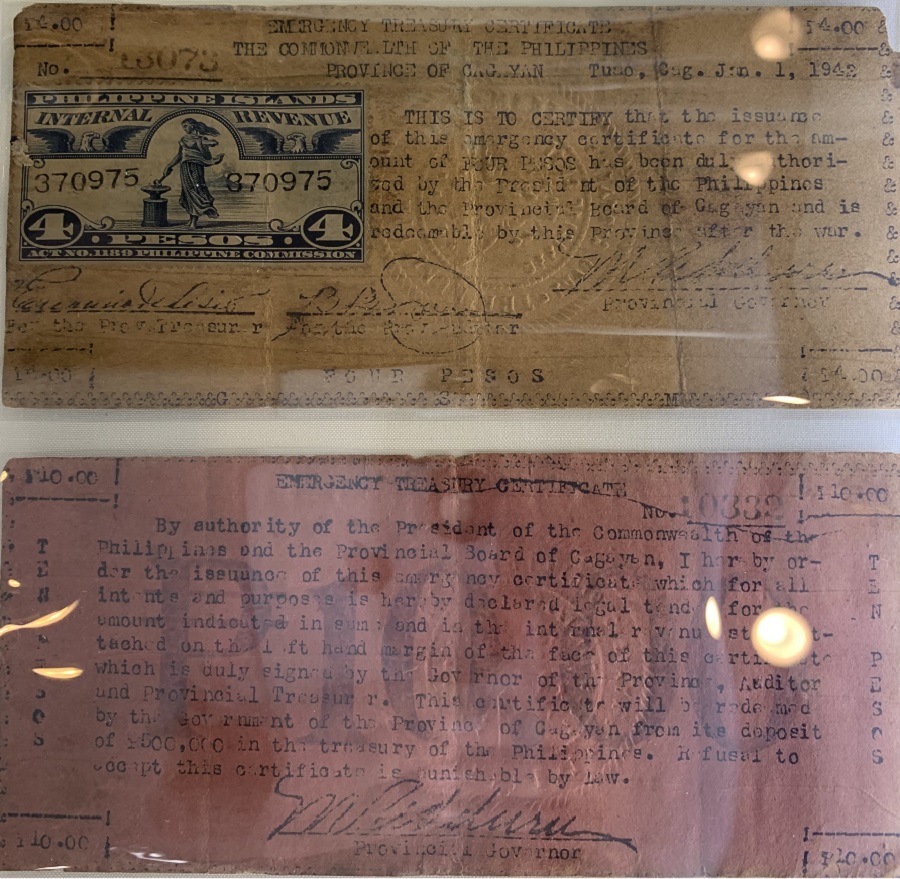 ₱4.00 EMERGENCY TREASURY CERTIFICATE ₱4.00
THE COMMONWEALTH OF THE PHILIPPINES
No. PROVINCE OF CAGAYAN Tuao, Cag. Jan. 1, 1942
PHILIPPINE ISLANDS
INTERNAL REVENUE
370975 370975
4 PESOS 4
ACT NO.1189 PHILIPPINE COMMISSION
THIS IS TO CERTIFY that the issuance
of this emergency certificate for the am-
ount of FOUR PESOS has been duly authori-
zed by the President of the Philippines
and the Provincial Board of Cagayan and is
redeemable by this Province after the war.
Provincial Governor
For the Prov. Treasurer For the Prov. Auditor
₱4.00 FOUR PESOS ₱4.00
₱10.00 EMERGENCY TREASURY CERTIFICATE ₱10.00
No. 10332
By authority of the President of the Commonwealth of the
Philippines and the Provincial Board of Cagayan, I hereby or-
der the issuance of this emergency certificate which for all
intents and purposes is hereby declared legal tender for the
amount indicated in sum and in the internal revenue stamp at-
tached on the left hand margin of the face of this certificate
which is duly signed by the Governor of the Province, Auditor
and Provincial Treasurer. This certificate will be redeemed
by the Government of the Province of Cagayan from its deposit
of ₱500,000 in the treasury of the Philippines. Refusal to
accept this certificate is punishable by law.
TEN PESOS
TEN PESOS
Provincial Governor
₱10.00 ₱10.00